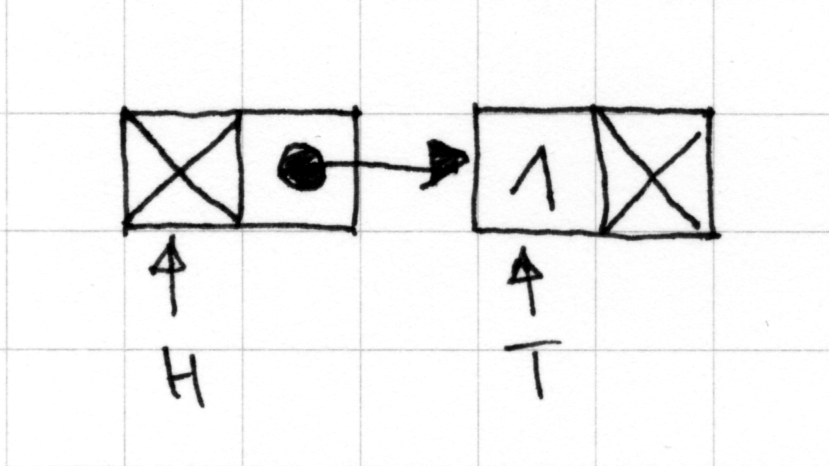 1
H T